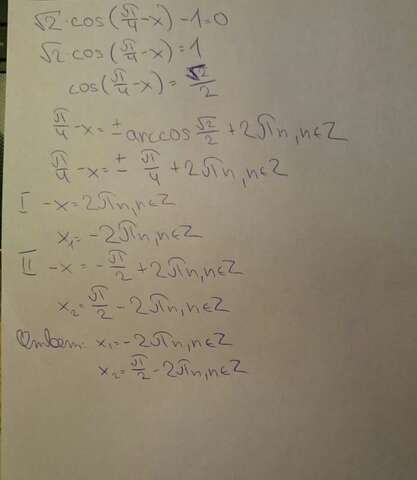 √2 · cos(π/4 - x) - 1 = 0
√2 · cos(π/4 - x) = 1
cos(π/4 - x) = √2/2
π/4 - x = ± arccos √2/2 + 2πn, n∈Z
π/4 - x = ± π/4 + 2πn, n∈Z
I -x = 2πn, n∈Z
x₁ = -2πn, n∈Z
II -x = -π/2 + 2πn, n∈Z
x₂ = π/2 - 2πn, n∈Z
Ответ: x₁ = -2πn, n∈Z
x₂ = π/2 - 2πn, n∈Z